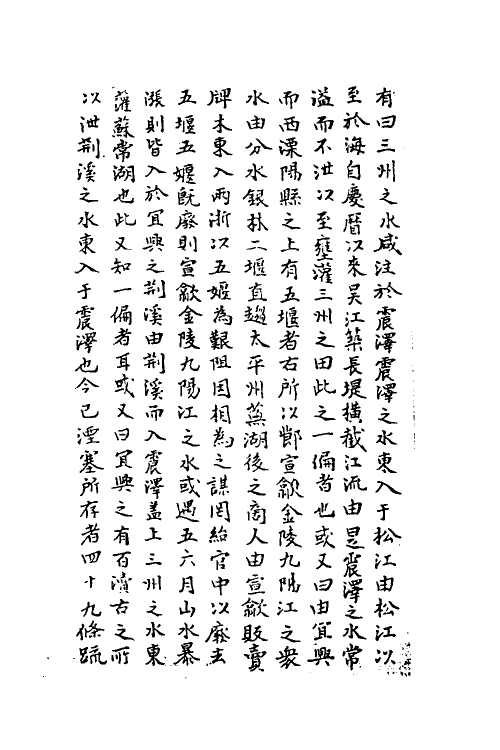 有曰三州之水咸注於震澤震澤之水東入于松江由松江以
至於海自慶曆以來吴江築長堤橫截江流由是震澤之水常
溢而不泄以至壅灌三州之田此之一偏者也或又曰由宜興
而西溧陽縣之上有五堰者古所以節宣歙金陵九陽江之衆
水由分水銀林二堰直趨太平州蕪湖後之商人由宣歙販賣
牌木東入兩浙以五堰為艱阻因相為之謀罔紿官中以廢去
五堰五堰既廢則宣歙金陵九陽江之水或遇五六月山水暴
漲則皆入於宜興之荆溪由荆溪而入震澤盖上三州之水東
灌蘇常湖也此又知一偏者耳或又曰宜興之有百瀆古之所
以泄荆溪之水東入于震澤也今已湮塞所存者四十九條䟽